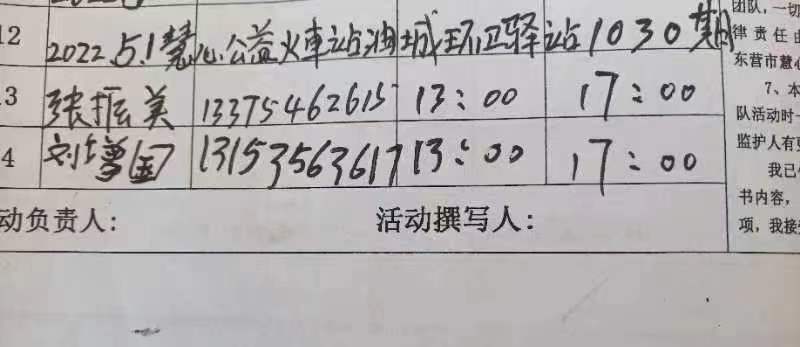 12 2022.5.1慧心公益火车站油城环卫驿站1030期
3 张振美 13375462615 13:00 17:00
4 刘增国 13153563617 13:00 17:00
动负责人: 活动撰写人:
团队,一切
律责任由
东营市慧心
7、本
队活动时一
监护人有
我已
书内容,
项,我接